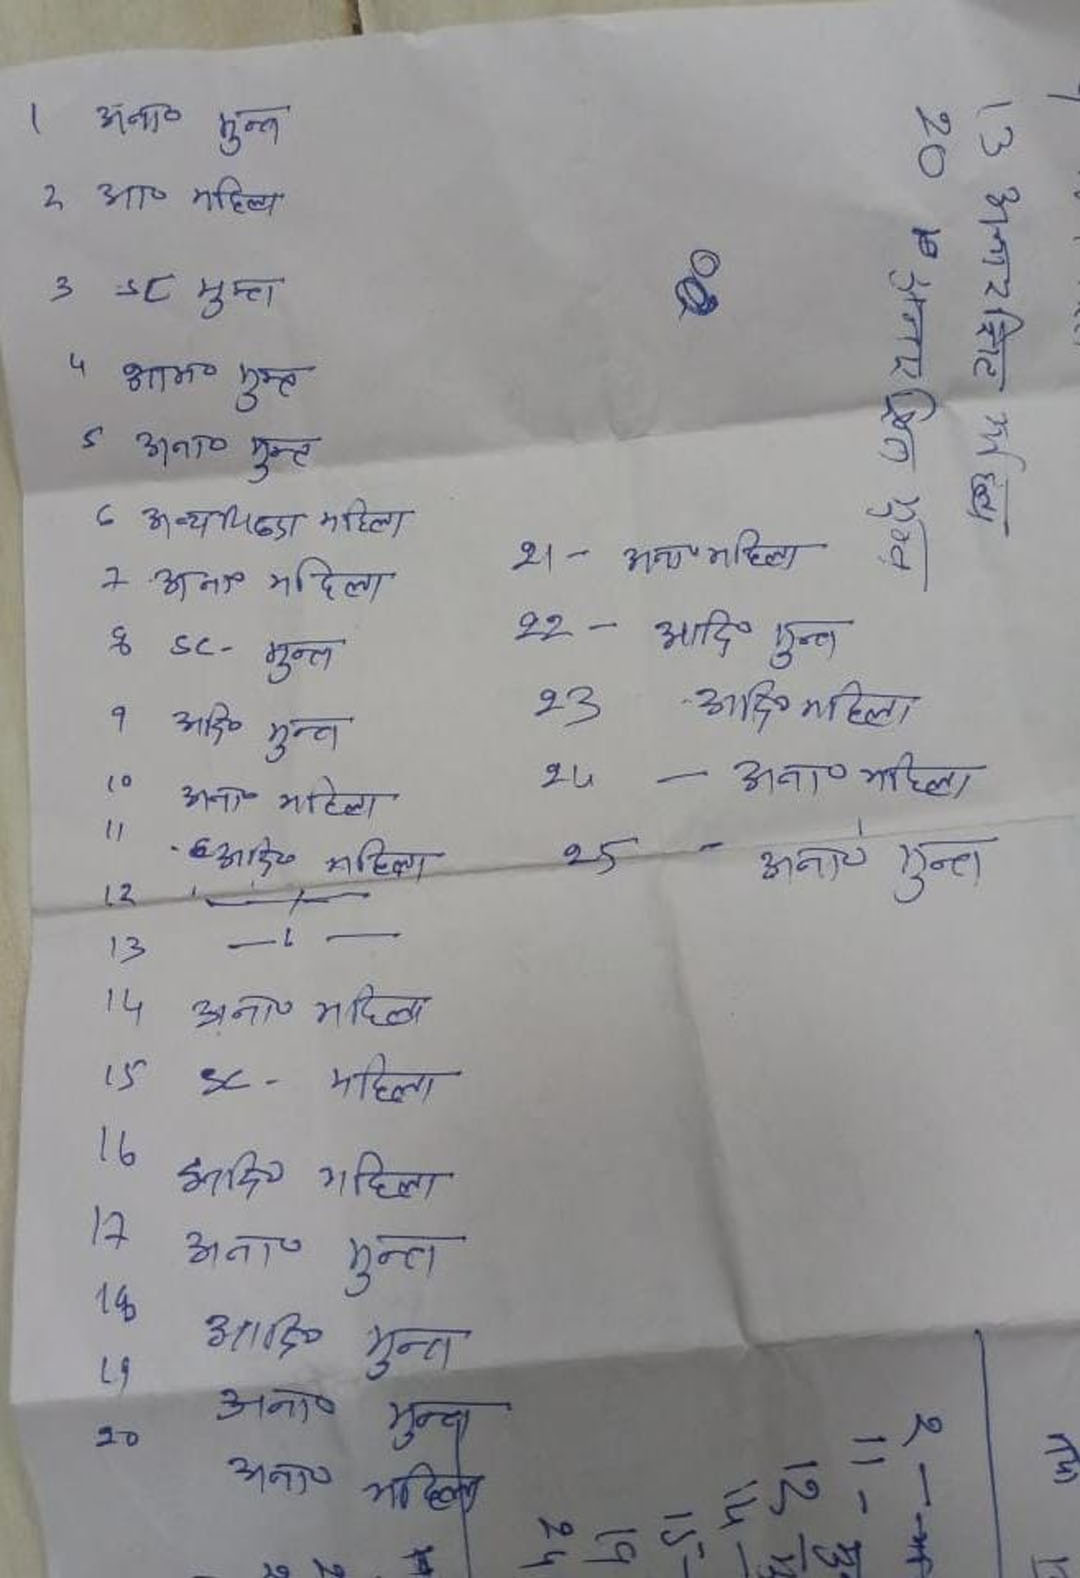 1 अना० मुक्त
2 आ० महिला
3 SC मुक्त
4 आना० मुक्त
5 अना० मुक्त
6 अन्य पिछडा महिला
7 अना० महिला
8 SC- मुक्त
9 आदि० मुक्त
10 अना० महिला
11 आदि० महिला
12 —〃—
13 —〃—
14 अना० महिला
15 SC - महिला
16 आदि० महिला
17 अना० मुक्त
18 आदि० मुक्त
19 अना० मुक्त
20 अना० महिला
21 - अना० महिला
22 - आदि० मुक्त
23 आदि० महिला
24 — अना० महिला
25 - अना० मुक्त
13 अनारक्षित महिला
20 अनारक्षित मुक्त
2 -
11 -
12
14 -
15 -
19
24